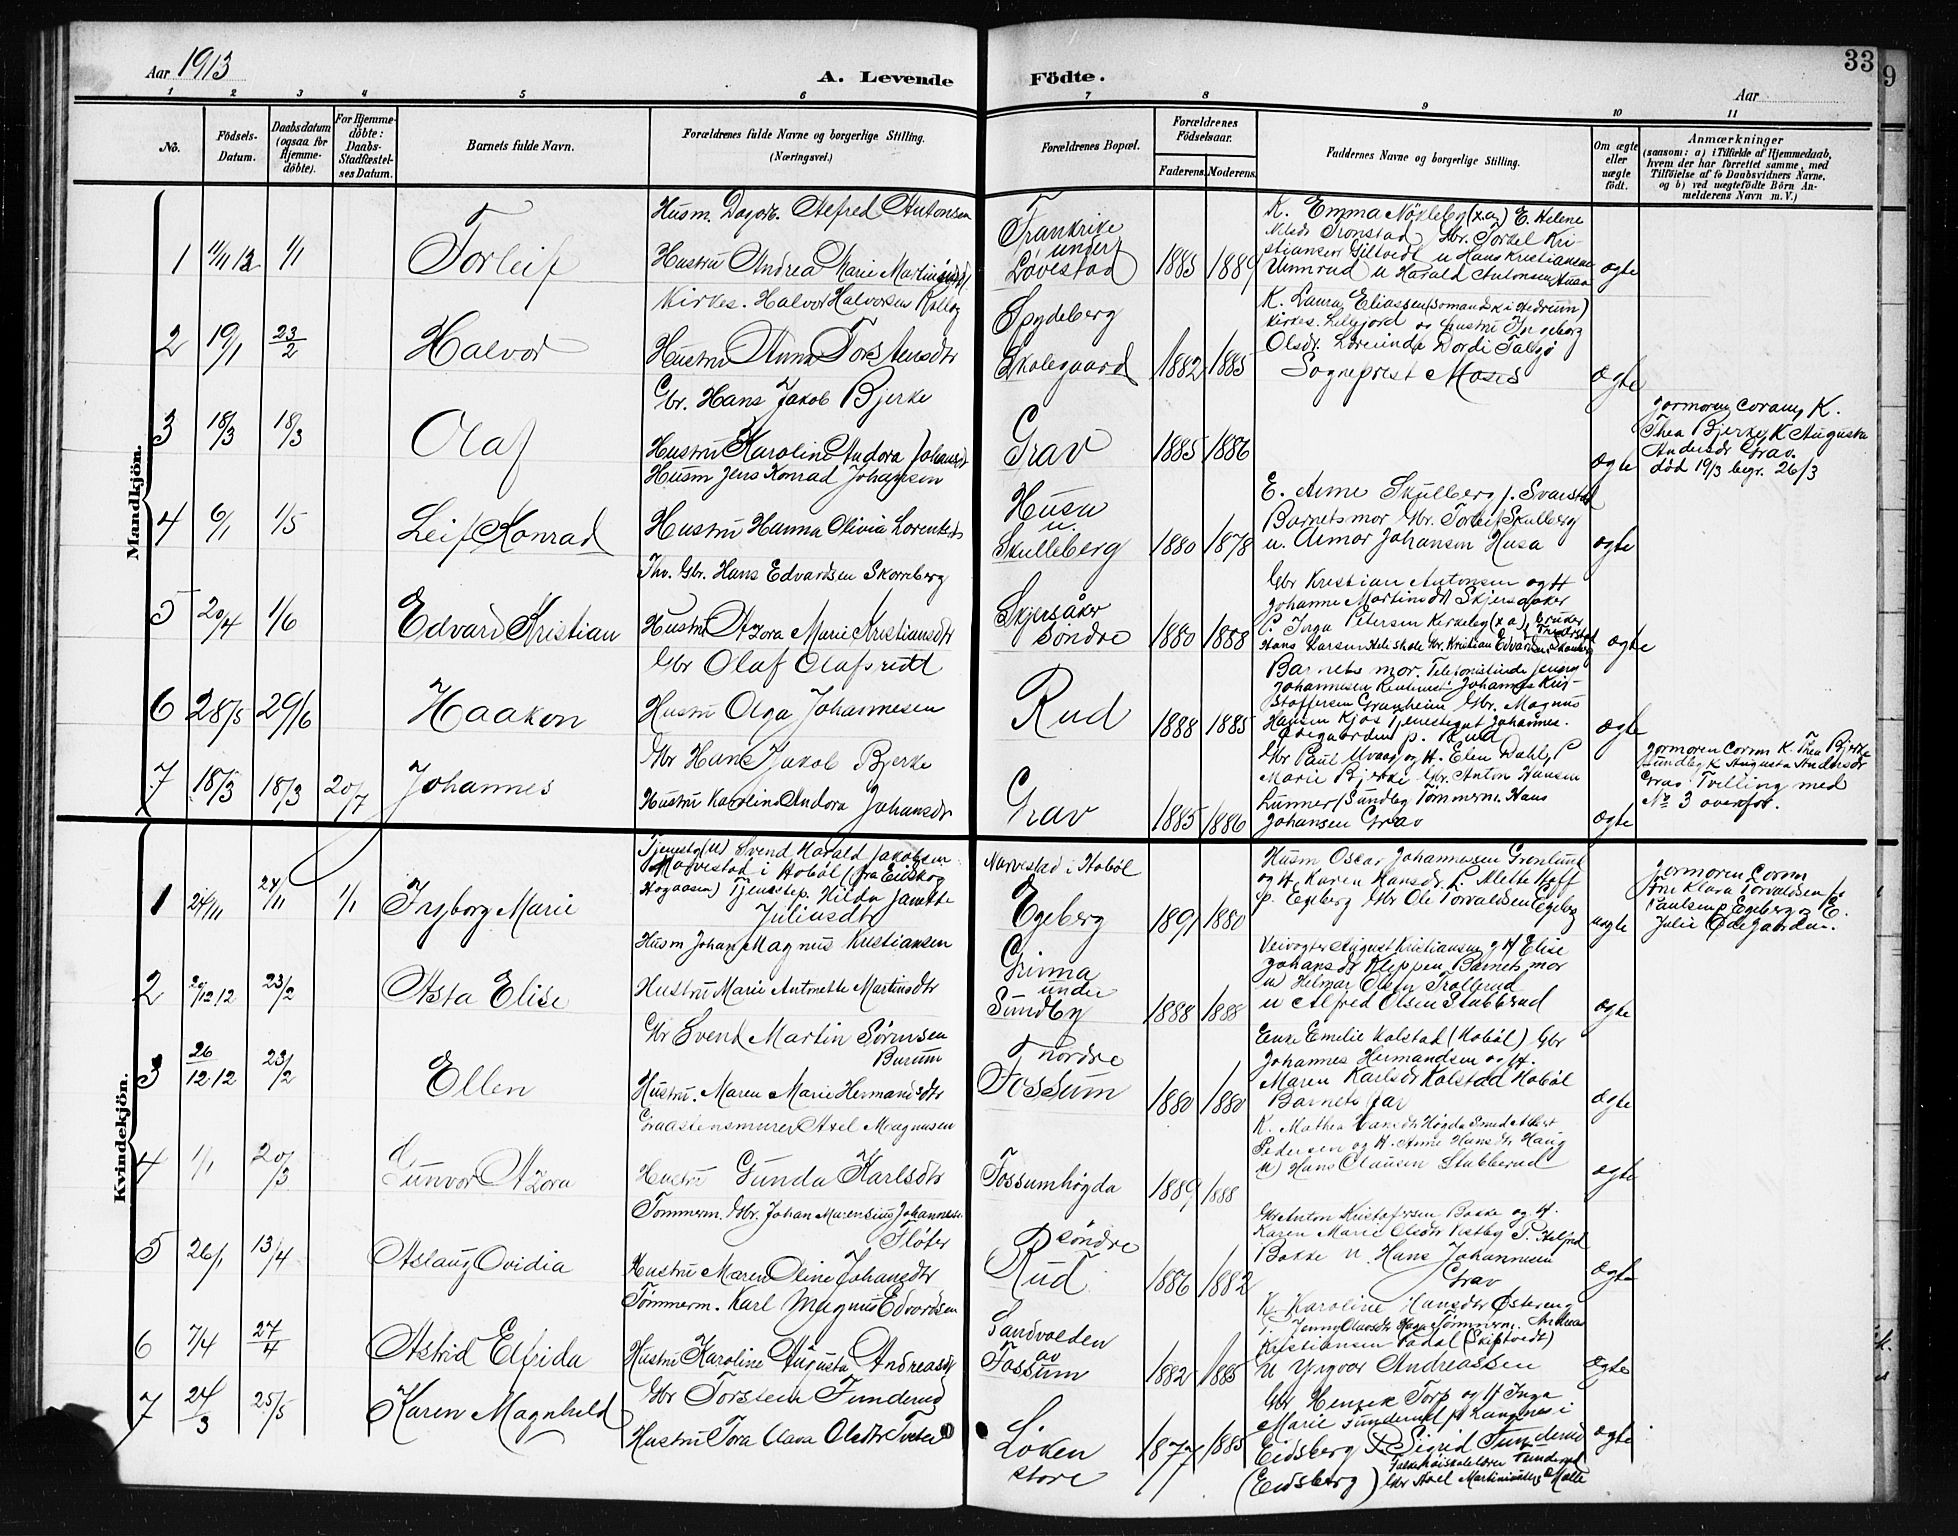 Aar 1913
A. Levende Födte.
33
9
Aar
1 2 3 4 5 6 7 8 9 10 11
No.
Födsels-Datum.
Daabsdatum (ogsaa for Hjemme-döbte).
For Hjemme-döbte: Daabs-Stadfæstel-ses Datum.
Barnets fulde Navn.
Forældrenes fulde Navne og borgerlige Stilling.
(Næringsvei.)
Forældrenes Bopæl.
Forældrenes Födselsaar.
Faderens. Moderens.
Faddernes Navne og borgerlige Stilling.
Om ægte eller uægte födt.
Anmærkninger
(saasom: a) i Tilfælde af Hjemmedaab, hvem der har forrettet samme, med Tilföielse af to Daabsvidners Navne, og b) ved uægtefödte Börn An-melderens Navn m. V.)
Mandkjön.
1 11/11 12 1/1 Torleif
Husm. Dagarb. Alfred Antonsen
Hustru Andrea Marie
Frankrike under Løvestad
1885 1889
K. Emma Nökleby (x.a.) E. Helene
Tronstad Gbr. Torkel Kri-
stiansen Giltvedt u Hans Kristiansen
Ummrud u Harald Antonsen Husa
ægte
2 19/1 23/2 Halvor
Kirkes. Halvor Halvorsen
Hustru Anna Torstensdtr
Spydeberg Skolegaard
1882 1885
K. Laura Eliassen
Kirkes. Lilejord og hustru Ingeborg
Olsdr.
Sogneprest Moses
ægte
3 18/3 18/3 Olaf
Gbr. Hans Jakob Bjerke
Hustru Karoline Andora Johansdt
Grav
1885 1886
ægte
Jormoren Coram K.
Thea Bjerke, K Augusta
Andersdr Grav.
död 19/3 begr. 26/3
4 6/1 1/5 Leif Konrad
Husm Jens Konrad Johansen
Hustru Hanna Olivia Lorentsdt
Husa u. Skulleberg
1880 1878
E. Anne Skulberg
Barnets mor Gbr. Torleif Skulberg
u. Armor Johansen Husa
ægte
5 20/4 1/6 Edvard Kristian
Gbr. Hans Edvardsen Skorreberg
Hustru Azora Marie Kristiansdtr
Skjersåker söndre
1880 1888
Gbr Kristian Antonsen og H
Johanne Martinsdt Skjersaaker
P. Inga Petersen Kirkeby (x a)
Hans Larsen Gbr. Kristian Edvardsen
ægte
6 28/5 29/6 Haakon
Gbr Olaf Olafsrudt
Hustru Olga Johannesen
Rud
1888 1885
Barnets mor. Telefonistinde Jenny
Johannesen Johannes Kri-
stoffersen Granheim Gbr. Magnus
Hansen Kjos Tjenestegut Johannes
Ödegaarden p. Rud
ægte
7 18/3 18/3 20/7 Johannes
Gbr Hans Jakob Bjerke
Hustru Karoline Andora Johansdtr
Grav
1885 1886
Gbr Paul Mvaag og H. Elen Dahl, P
Marie Bjerke Gbr. Anton Hansen
Lunner, Sundby Tömmerm. Hans
Johansen Grav
ægte
Jormoren Coram K. Thea Bjerke
Sundby K Augusta Andersdr
Grav Tvilling med
No 3 ovenfor.
Kvindekjön.
1 24/11 24/11 1/1 Ingborg Marie
Tjenestg (u) Svend Harald Jakobsen
Narvestad i Hobøl (fra Eidskog
Hogaasen) Tjenestep. Hilda Janette
Juliusdtr
Narvestad i Hobøl
Egeberg
1891 1880
Husm Oscar Johannesen Grønlund
og H. Karen Hansdr. P. Mette Hoff
p. Egeberg Gbr Ole Torvaldsen Egeberg
uægte
Jormoren Coram
Klara Torvaldsen
Paulsen Egeberg E.
Julie Ödegaarden.
2 20/12 12 23/2 Asta Elise
Husm Johan Magnus Kristiansen
Hustru Marie Antonette Martinsdtr
Grinna under Sundby
1888 1888
Veivogter August Kristiansen og H Elise
Johansdr Kleppen Barnets mor
u Helmar Olsen Trollerud
u Alfred Olsen Stubberud
ægte
3 26/12 12 23/2 Ellen
Gbr Svend Martin Sørensen
Burum
Hustru. Maren Marie Hermansdtr
nordre Fossum
1880 1880
Enke Emelie Kolstad (Hobøl) Gbr
Johannes Hermandsen og H.
Maren Karlsdr Kolstad Hobøl
Barnets far
ægte
4 1/1 20/3 Gunvor Azora
Graastensmurer Axel Magnusen
Hustru Gunda Karlsdtr
Fossumhögda
1889 1888
K. Mathea Hansdr Högda Smed Albert
Pedersen og H. Anne Hansdr Haug
u Hans Clausen Stubberud
ægte
5 26/1 13/4 Aslaug Ovidia
Tommerm. Gbr. Johan Marensius Johannes
Fløter
Hustru Maren Oline Johansdtr
söndre Rud
1886 1882
Gbr Anton Kristofersen Bakke og H.
Karen Marie Olsdtr
Bakke u. Hans Johannesen
Grav
ægte
6 7/4 27/4 Astrid Elfrida
Tömmerm. Karl Magnus Edvardsen
Hustru Karoline Augusta Andreasdt
Sandvolden av Fossum
1882 1885
K. Karoline Hansdtr Østereng
P. Jenny Olavsdtr Haga Tömmerm. Andreas
Kristiansen Vadal (Skiptvedt)
u Yngvar Andreassen
ægte
7 24/3 25/5 Karen Magnhild
Gbr Torstein Funderud
Hustru Tora Clara Olsdtr Tveter
Löken store
1877 1885
Gbr Henrik Torp og H Inga
Marie Funderud p. Langnes i
Eidsberg P. Sigrid Funderud
(Eidsberg) Folkehöiskolelærer Funderud
Gbr Axel Martiniusen Moelle
ægte